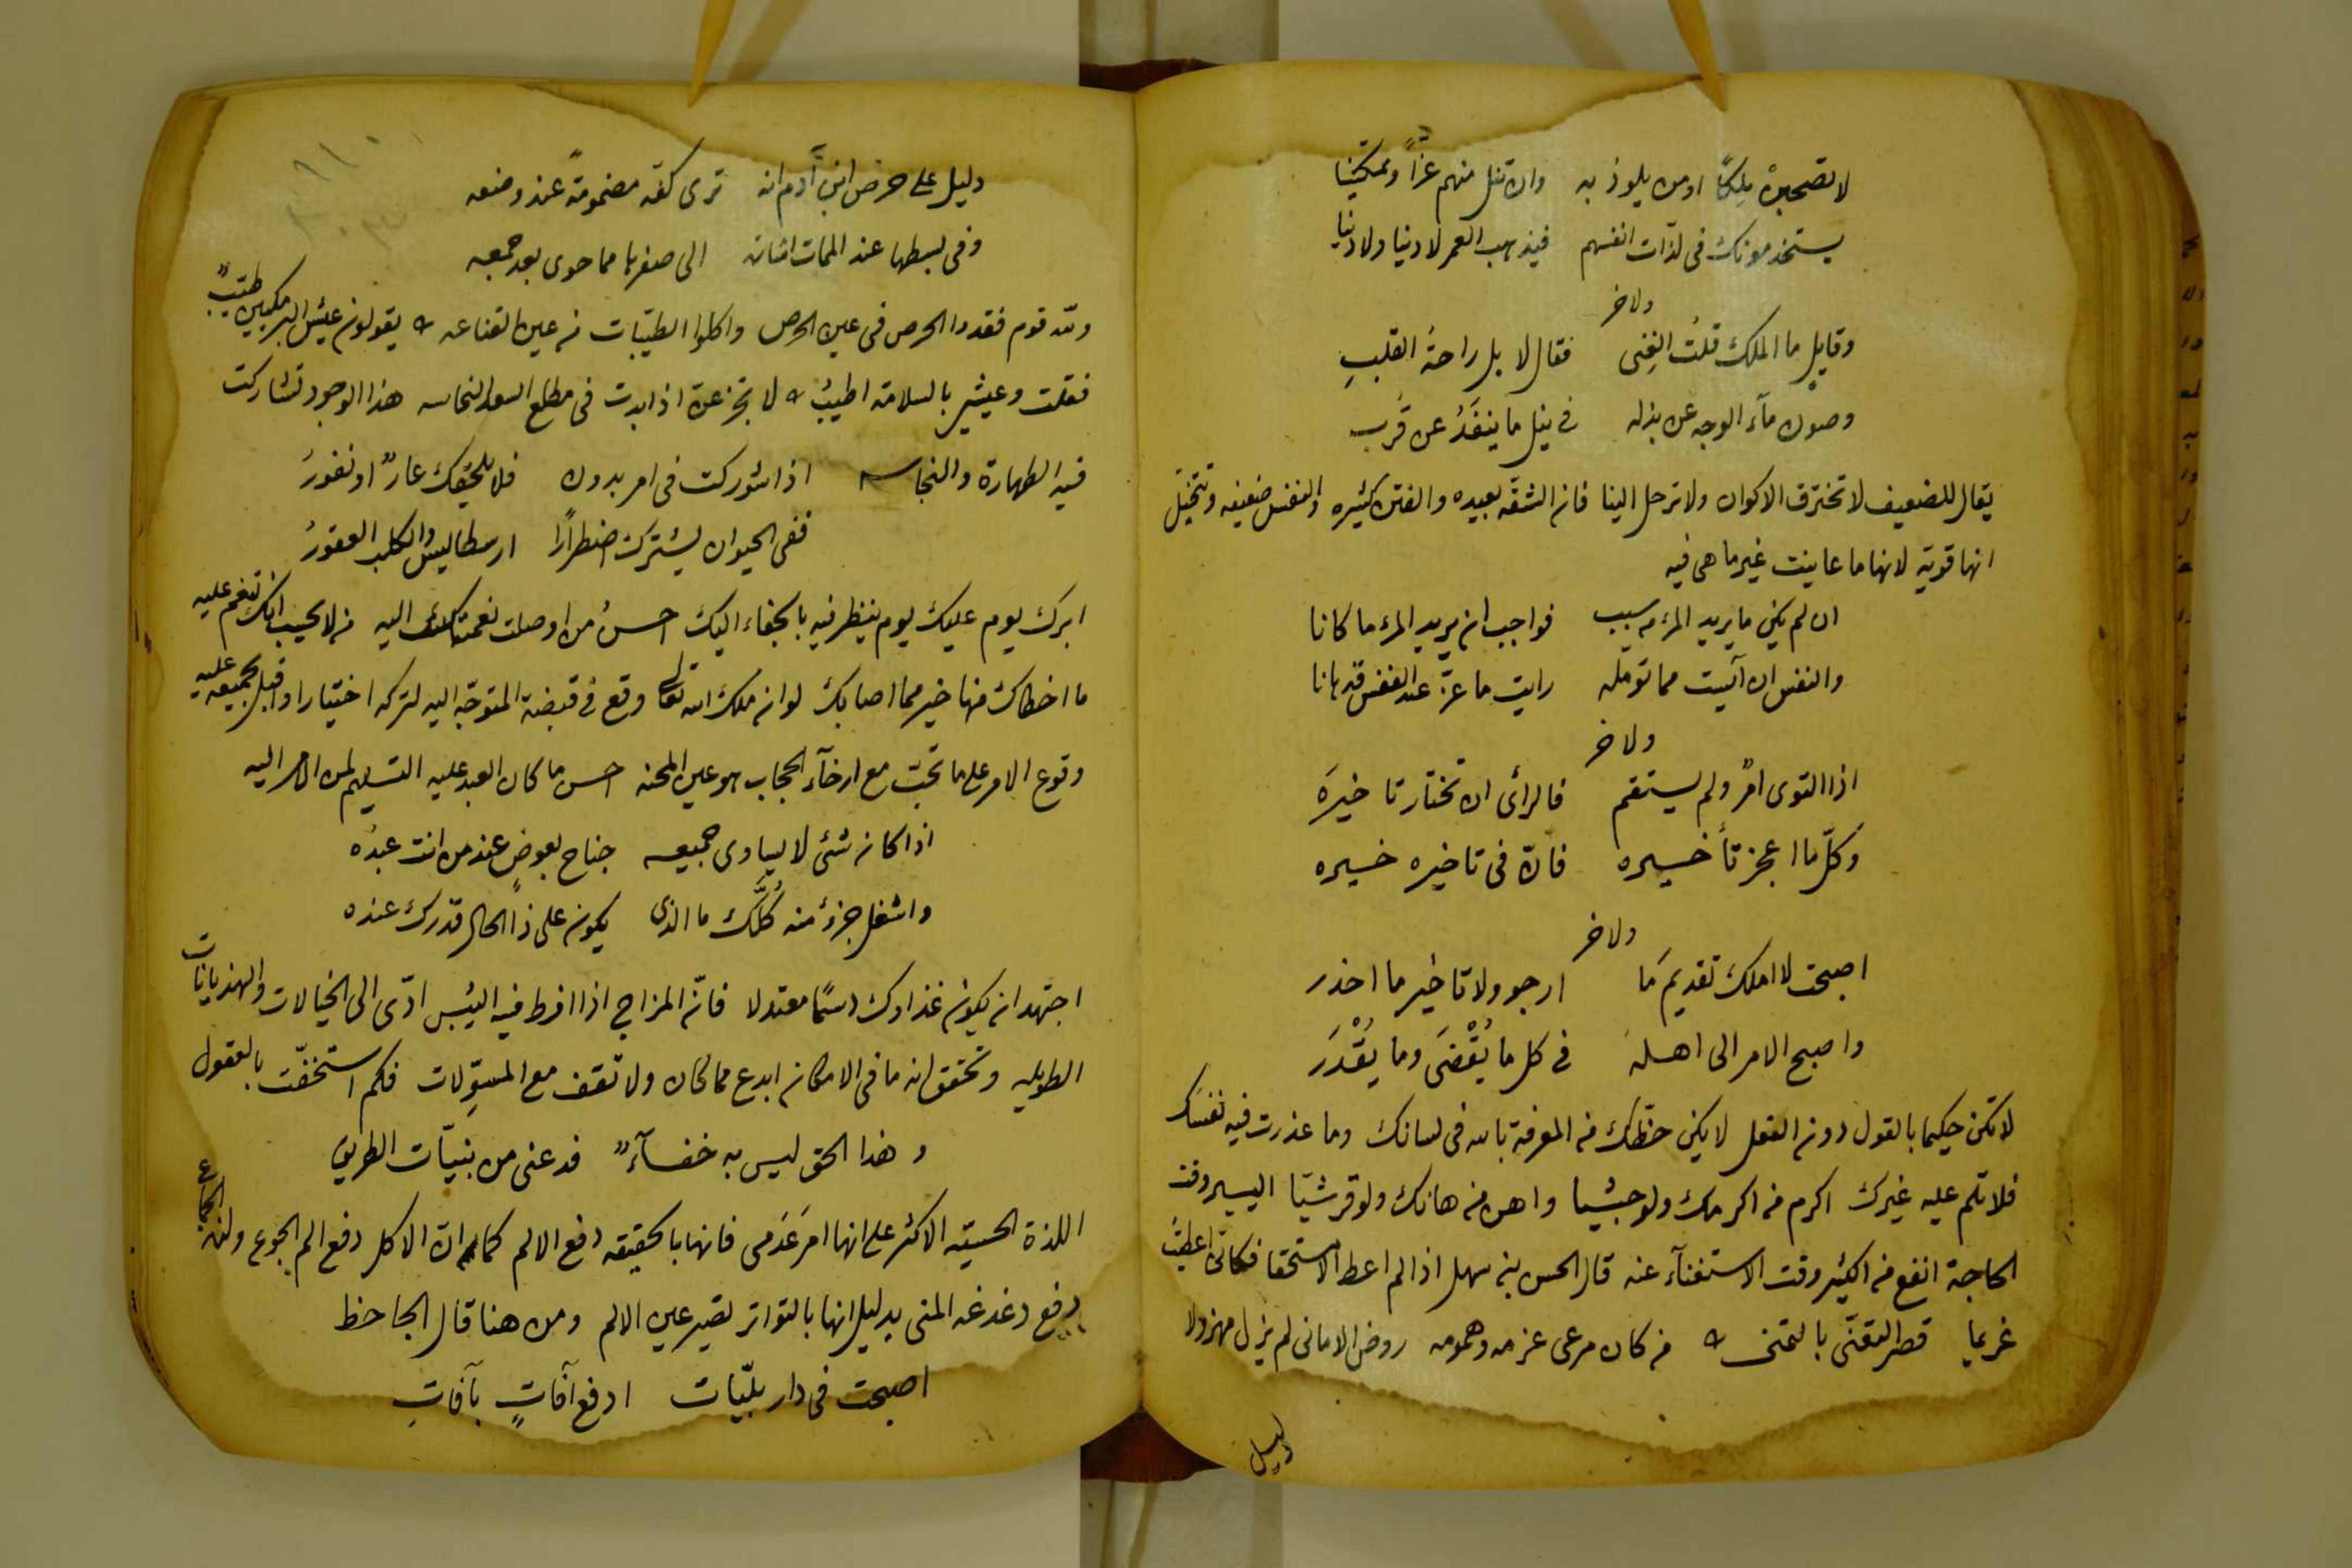 لا تصحبنْ ملِكًا او من يلوذ به وان تنل منهم عزًّا وتمكينا
يستخدمونك فى لذّات انفسهم فيذهب العمر لا دنيا ولا دينا
ولاخر
وقايلٍ ما الملك قلتُ الغِنى فقال لا بل راحةُ القلبِ
وصون مآء الوجه عن بذله فى نيل ما ينفَدُ عن قُرب
يقال للضعيف لا تخترق الاكوان ولا ترحل الينا فان الشقّه بعيده والفتن كثيره والنفس ضعيفه وتتخيّل
انها قويّه لانها ما عاينت غير ما هى فيه
ان لم يكن ما يريد المرء من سبب فواجب ان يريد المرء ما كانا
والنفس ان آيست مما تؤمله رايت ما عزّ عند النفس قد هانا
ولاخر
اذا التوى امرٌ ولم يستقم فالرأى ان تختار تاخيرَه
وكلّ ما اعجز تأخيره فانّ فى تاخيره خيره
ولاخر
اصبحت لا املك تقديمَ مَا ارجو ولا تاخير ما احذر
واصبح الامر الى اهله فى كل ما يُقْضَى وما يُقْدَر
لا تكن حكيما بالقول دون الفعل لا يكن حظّك من المعرفة بالله فى لسانك وما عذرت فيه نفسَك
فلا تلم عليه غيرك اكرم من اكرمك ولو حبشيا واهن من هانك ولو قرشيّا اليسير وقت
الحاجة انفع من الكثير وقت الاستغنآء عنه قال الحسن بن سهل اذا لم اعط الا مستحقا فكانّى اعطيتُ
غريما من كان مرعى عزمه وهمومه روض الامانى لم يزل مهزولا
دليل
دليل على حرص ابن آدم انه ترى كفّه مضمومةً عند وضعه
وفى بسطها عند الممات اشارة الى صفرها مما حوى بعد جمعه
ولله قوم فقدوا الحرص فى عين الحرص واكلوا الطيّبات من عين القناعه يقولون عيش طيّبٌ
فقلت وعيشى بالسلامة اطيبُ لا تجزعن اذا بدت فى مطلع السعد النحاسه هذا الوجود تشاركت
فيه الطهارة والنجاسه اذا شُوركت فى امر بدون فلا يلحقك عارٌ او نفورُ
ففى الحيوان يشترك اضطرارًا ارسطاليس والكلب العقورُ
ابرك يوم عليك يوم ينظر فيه بالجفاء اليك احسنُ من اوصلت نعمتك اليه من لا يحسب انك تنعم عليه
ما اخطاك منها خير مما اصابك لو ان ملك الله تعالى وقع فى قبضة المتوجّه اليه لتركه اختيارا واقبل بجميعه عليه
وقوع الامر على ما تحبّ مع ارخآء الحجاب هو عين المحنه احسن ما كان العبد عليه التسليم لمن الامر اليه
اذا كان شئ لا يساوى جميعه جناح بعوضٍ عند من انت عبدُه
واشغل جزءٌ منه كُلَّك ما الذى يكون على ذا الحال قدرك عنده
اجتهد ان يكون غذاوك دسمًا معتدلا فانّ المزاج اذا افرط فيه اليُبس ادّى الى الخيالات والهذيانات
الطويله وتحقق انه ما فى الامكان ابدع مما كان ولا تقف مع المسوّلات فكم استخفّت بالعقول
وهذا الحق ليس به خفآءٌ فدعنى من بنيّات الطريق
اللذة الحسيّه الاكثر على انها امر عَدَمى فانها بالحقيقه دفع الالم كما ان الاكل دفع الم الجوع ولذة الجماع
دفع دغدغه المنى بدليل انها بالتواتر تصير عين الالم ومن هنا قال الجاحظ
اصبحت فى دار بليّات ادفع آفاتٍ بآفاتِ